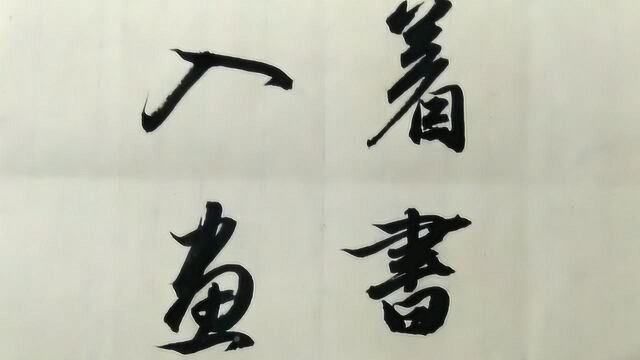 着書
入畫